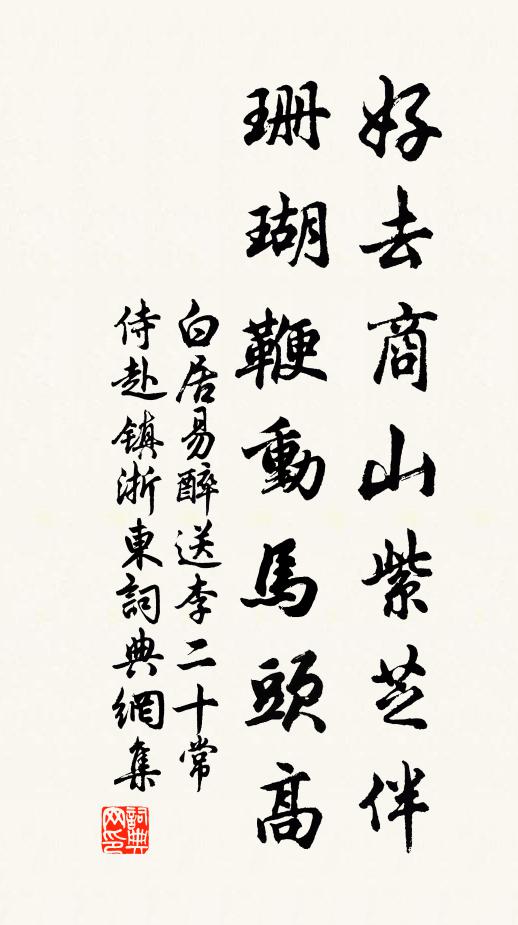 好去商山紫芝伴
珊瑚鞭動馬頭高
白居易醉送李二十常
侍赴鎮浙東詞典網集
詞典
网印